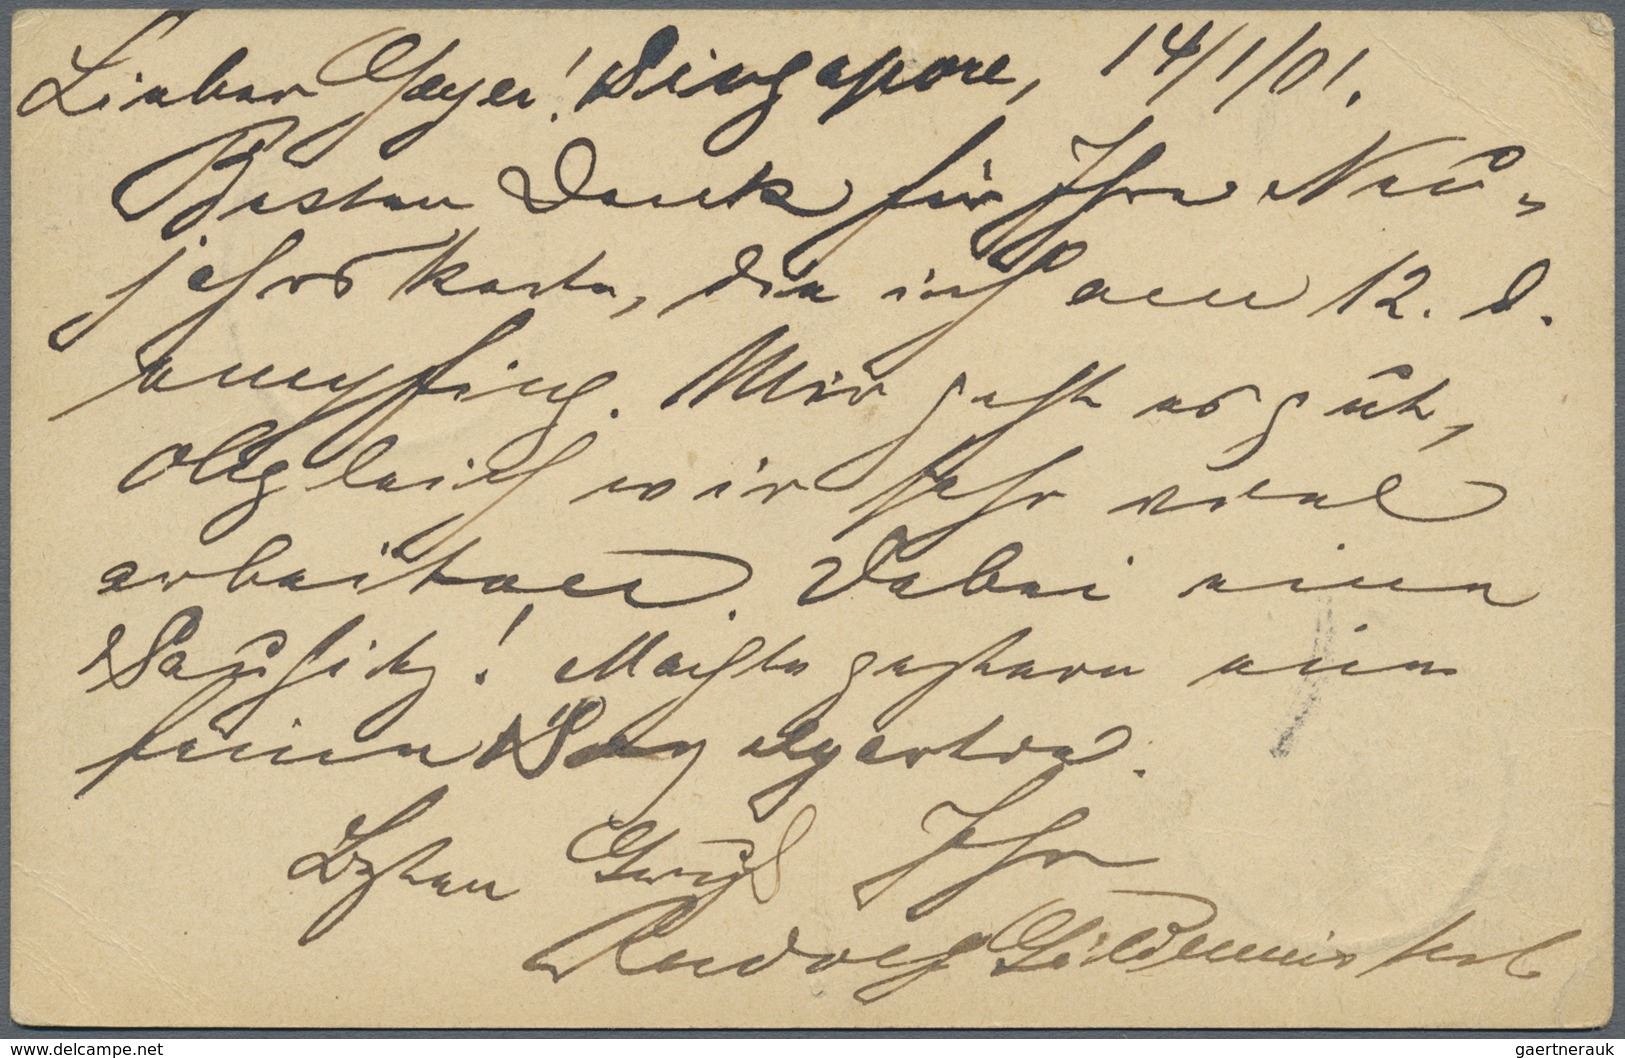 Lieber Geyer! Singapore, 14/1/01.
Besten Dank für Ihre Neu-
jahrskarte, die ich am 12. d.
empfing. Mir geht es gut,
obgleich wir sehr viel
arbeiten. Dabei eine
Sauhitz! Machte gestern eine
feine
Besten Gruß Ihr
Rudolf
www.delcampe.net
gaertnerauk